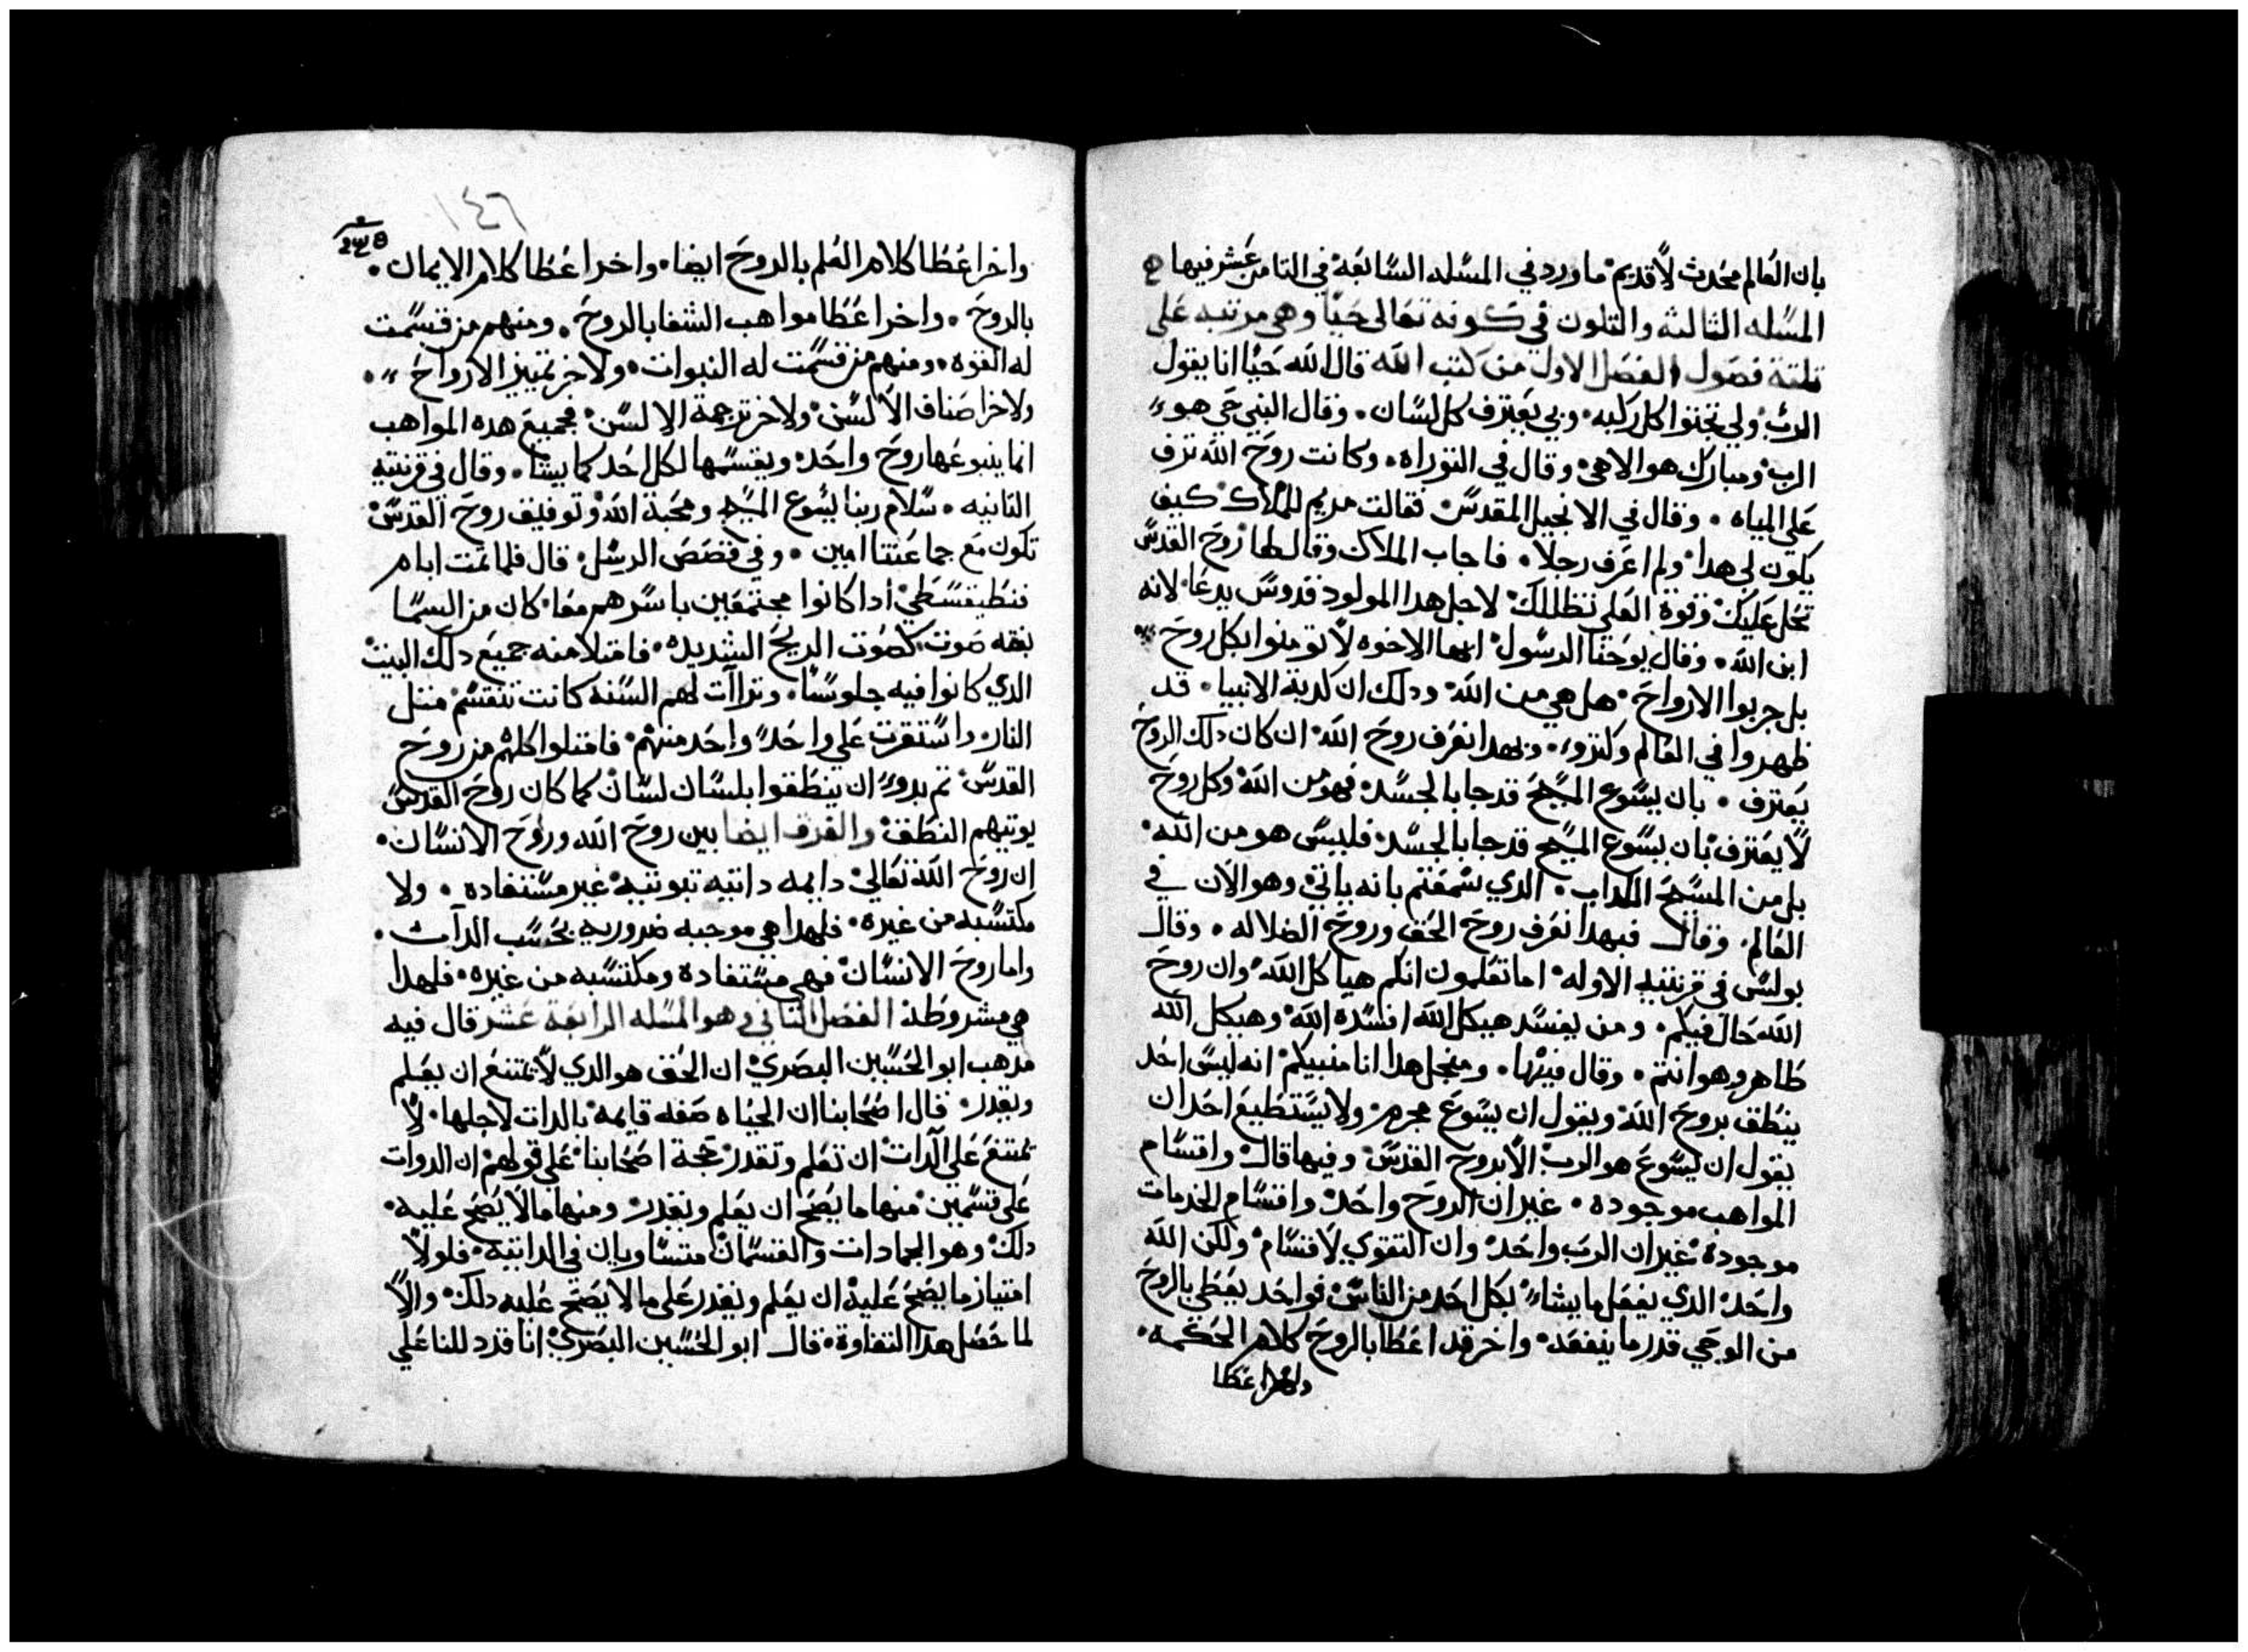 بان العالم محدث لا قديم ما ورد في المسله السابعه في التامن عشر فيها
المسله التالته والتلتون في كونه تعالى حيا وهي مرتبه على
تلتة فصول الفصل الاول من كتب الله قال الله حيا انا يقول
الرب ولي تجتوا كل ركبه وبي يعترف كل لسان وقال النبي حي هو
الرب ومبارك هو الاهي وقال في التوراه وكانت روح الله ترف
على المياه وقال في الانجيل المقدس فقالت مريم للملاك كيف
يكون لي هدا ولم اعرف رجلا فاجاب الملاك وقال لها روح القدس
تحل عليك وقوة العلي تظللك لاجل هدا المولود قدوس يدعا لانه
ابن الله وقال يوحنا الرسول ايها الاخوه لا تومنوا بكل روح
بل جربوا الارواح هل هي من الله ودلك ان كدبة الانبيا قد
ظهروا في العالم وكتروا وبهدا نعرف روح الله ان كان دلك الروح
يعترف بان يسوع المسيح قد جا بالجسد فهو من الله وكل روح
لا يعترف بان يسوع المسيح قد جا بالجسد فليس هو من الله
بل من المسيح الكداب الدي سمعتم بانه ياتي وهو الان في
العالم وقال فبهدا نعرف روح الحق وروح الضلاله وقال
بولس في قرنتيه الاوله اما تعلمون انكم هياكل الله وان روح
الله حال فيكم ومن يفسد هيكل الله افسده الله وهيكل الله
طاهر وهو انتم وقال فيها ومنجل هدا انا منبيكم انه ليس احد
ينطق بروح الله ويقول ان يسوع محرم ولا يستطيع احد ان
يقول ان يسوع هو الرب الا بروح القدس وفيها قال واقسام
المواهب موجوده غير ان الروح واحد واقسام الخدمات
موجودة غير ان الرب واحد وان التقوي لاقسام ولكن الله
واحد الدي يفعل ما يشاء بكل احد من الناس فواحد يعطي بالروح
من الوحي قدر ما ينفعه واخر قد اعطا بالروح كلام الحكمه
واخر اعطا
١٤٦
واخر اعطا كلام العلم بالروح ايضا واخر اعطا كلام الايمان
بالروح واخر اعطا مواهب الشفا بالروح ومنهم من قسمت
له القوه ومنهم من قسمت له النبوات ولاخر تمييز الارواح
ولاخر اصناف الالسن ولاخر ترجمة الالسن فجميع هده المواهب
انما ينبوعها روح واحد ويقسمها لكل احد كما يشا وقال في قرنتيه
التانيه سلام ربنا يسوع المسيح ومحبة الله وتوفيق روح القدس
تكون مع جماعتنا امين وفي قصص الرسل قال فلما تمت ايام
فنطيقسطي ادا كانوا مجتمعين باسرهم معا كان من السما
بغته صوت كصوت الريح الشديده فامتلا منه جميع دلك البيت
الدي كانوا فيه جلوسا وتراات لهم السنه كانت تنقسم متل
النار واستقرت على واحد واحد منهم فامتلوا كلهم من روح
القدس تم بدوا ان ينطقوا بلسان لسان كما كان روح القدس
يوتيهم النطق والفرق ايضا بين روح الله وروح الانسان
ان روح الله تعالي دايمه داتيه تبوتيه غير مستفاده ولا
مكتسبه من غيره فلهدا هي موجبه ضروريه بحسب الدات
واما روح الانسان فهي مستفادة ومكتسبه من غيره فلهدا
هي مشروطه الفصل التاني وهو المسله الرابعة عشر قال فيه
مدهب ابو الحسين البصري ان الحي هو الدي لا يمتنع ان يعلم
ويقدر قال اصحابنا ان الحياه صفه قايمه بالدات لاجلها لا
تمتنع علي الدات ان تعلم وتقدر حجة اصحابنا علي قولهم ان الدوات
علي قسمين منها ما يصح ان يعلم ويقدر ومنها ما لا يصح عليه
دلك وهو الجمادات والقسمان متساويان في الداتيه فلولا
امتياز ما يصح عليه ان يعلم ويقدر علي ما لا يصح عليه دلك والا
لما حصل هدا التفاوة قال ابو الحسين البصري انا قد دللنا علي